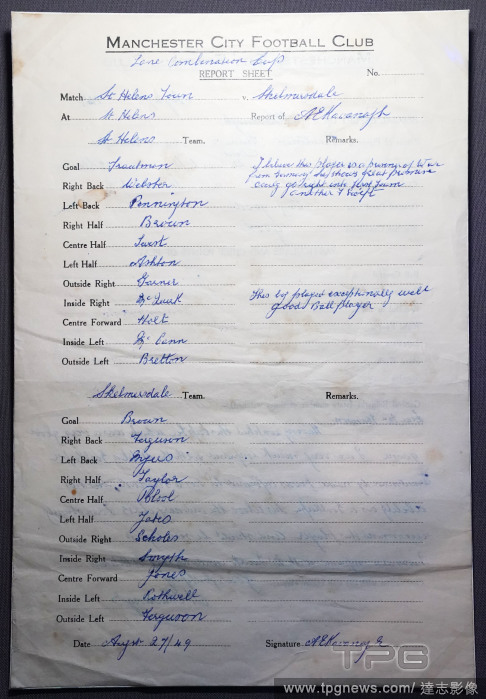 MANCHESTER CITY FOOTBALL CLUB
Lanc Combination Cup
REPORT SHEET No.
Match St Helens Town v. Skelmersdale
At St Helens Report of A E Kavanagh
St Helens Team. Remarks.
Goal Trautman I believe this player is a prisoner of War
Right Back Webster from Germany
Left Back Pennington another F Swift
Right Half Brown
Centre Half Twist
Left Half Ashton
Outside Right Garner
Inside Right This boy played exceptionally well
good Ball player
Centre Forward Holt
Inside Left Mc Cann
Outside Left Bretton
Skelmersdale Team. Remarks.
Goal Brown
Right Back Ferguson
Left Back Myers
Right Half Taylor
Centre Half
Left Half
Outside Right Scholes
Inside Right Smyth
Centre Forward Jones
Inside Left Rothwell
Outside Left Ferguson
Date August 27/49 Signature A E Kavanagh
TPG
www.tpgnews.com/ 達志影像